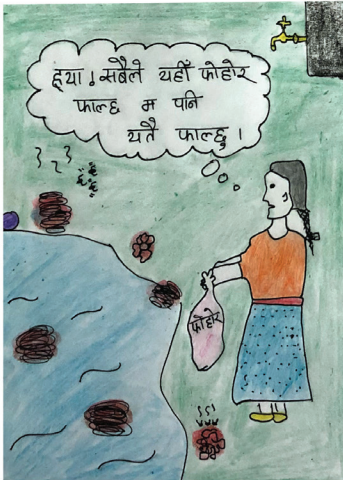 ह्या! सबैले यहीँ फोहोर
फाल्छ म पनि
यतै फाल्छु।
फोहोर